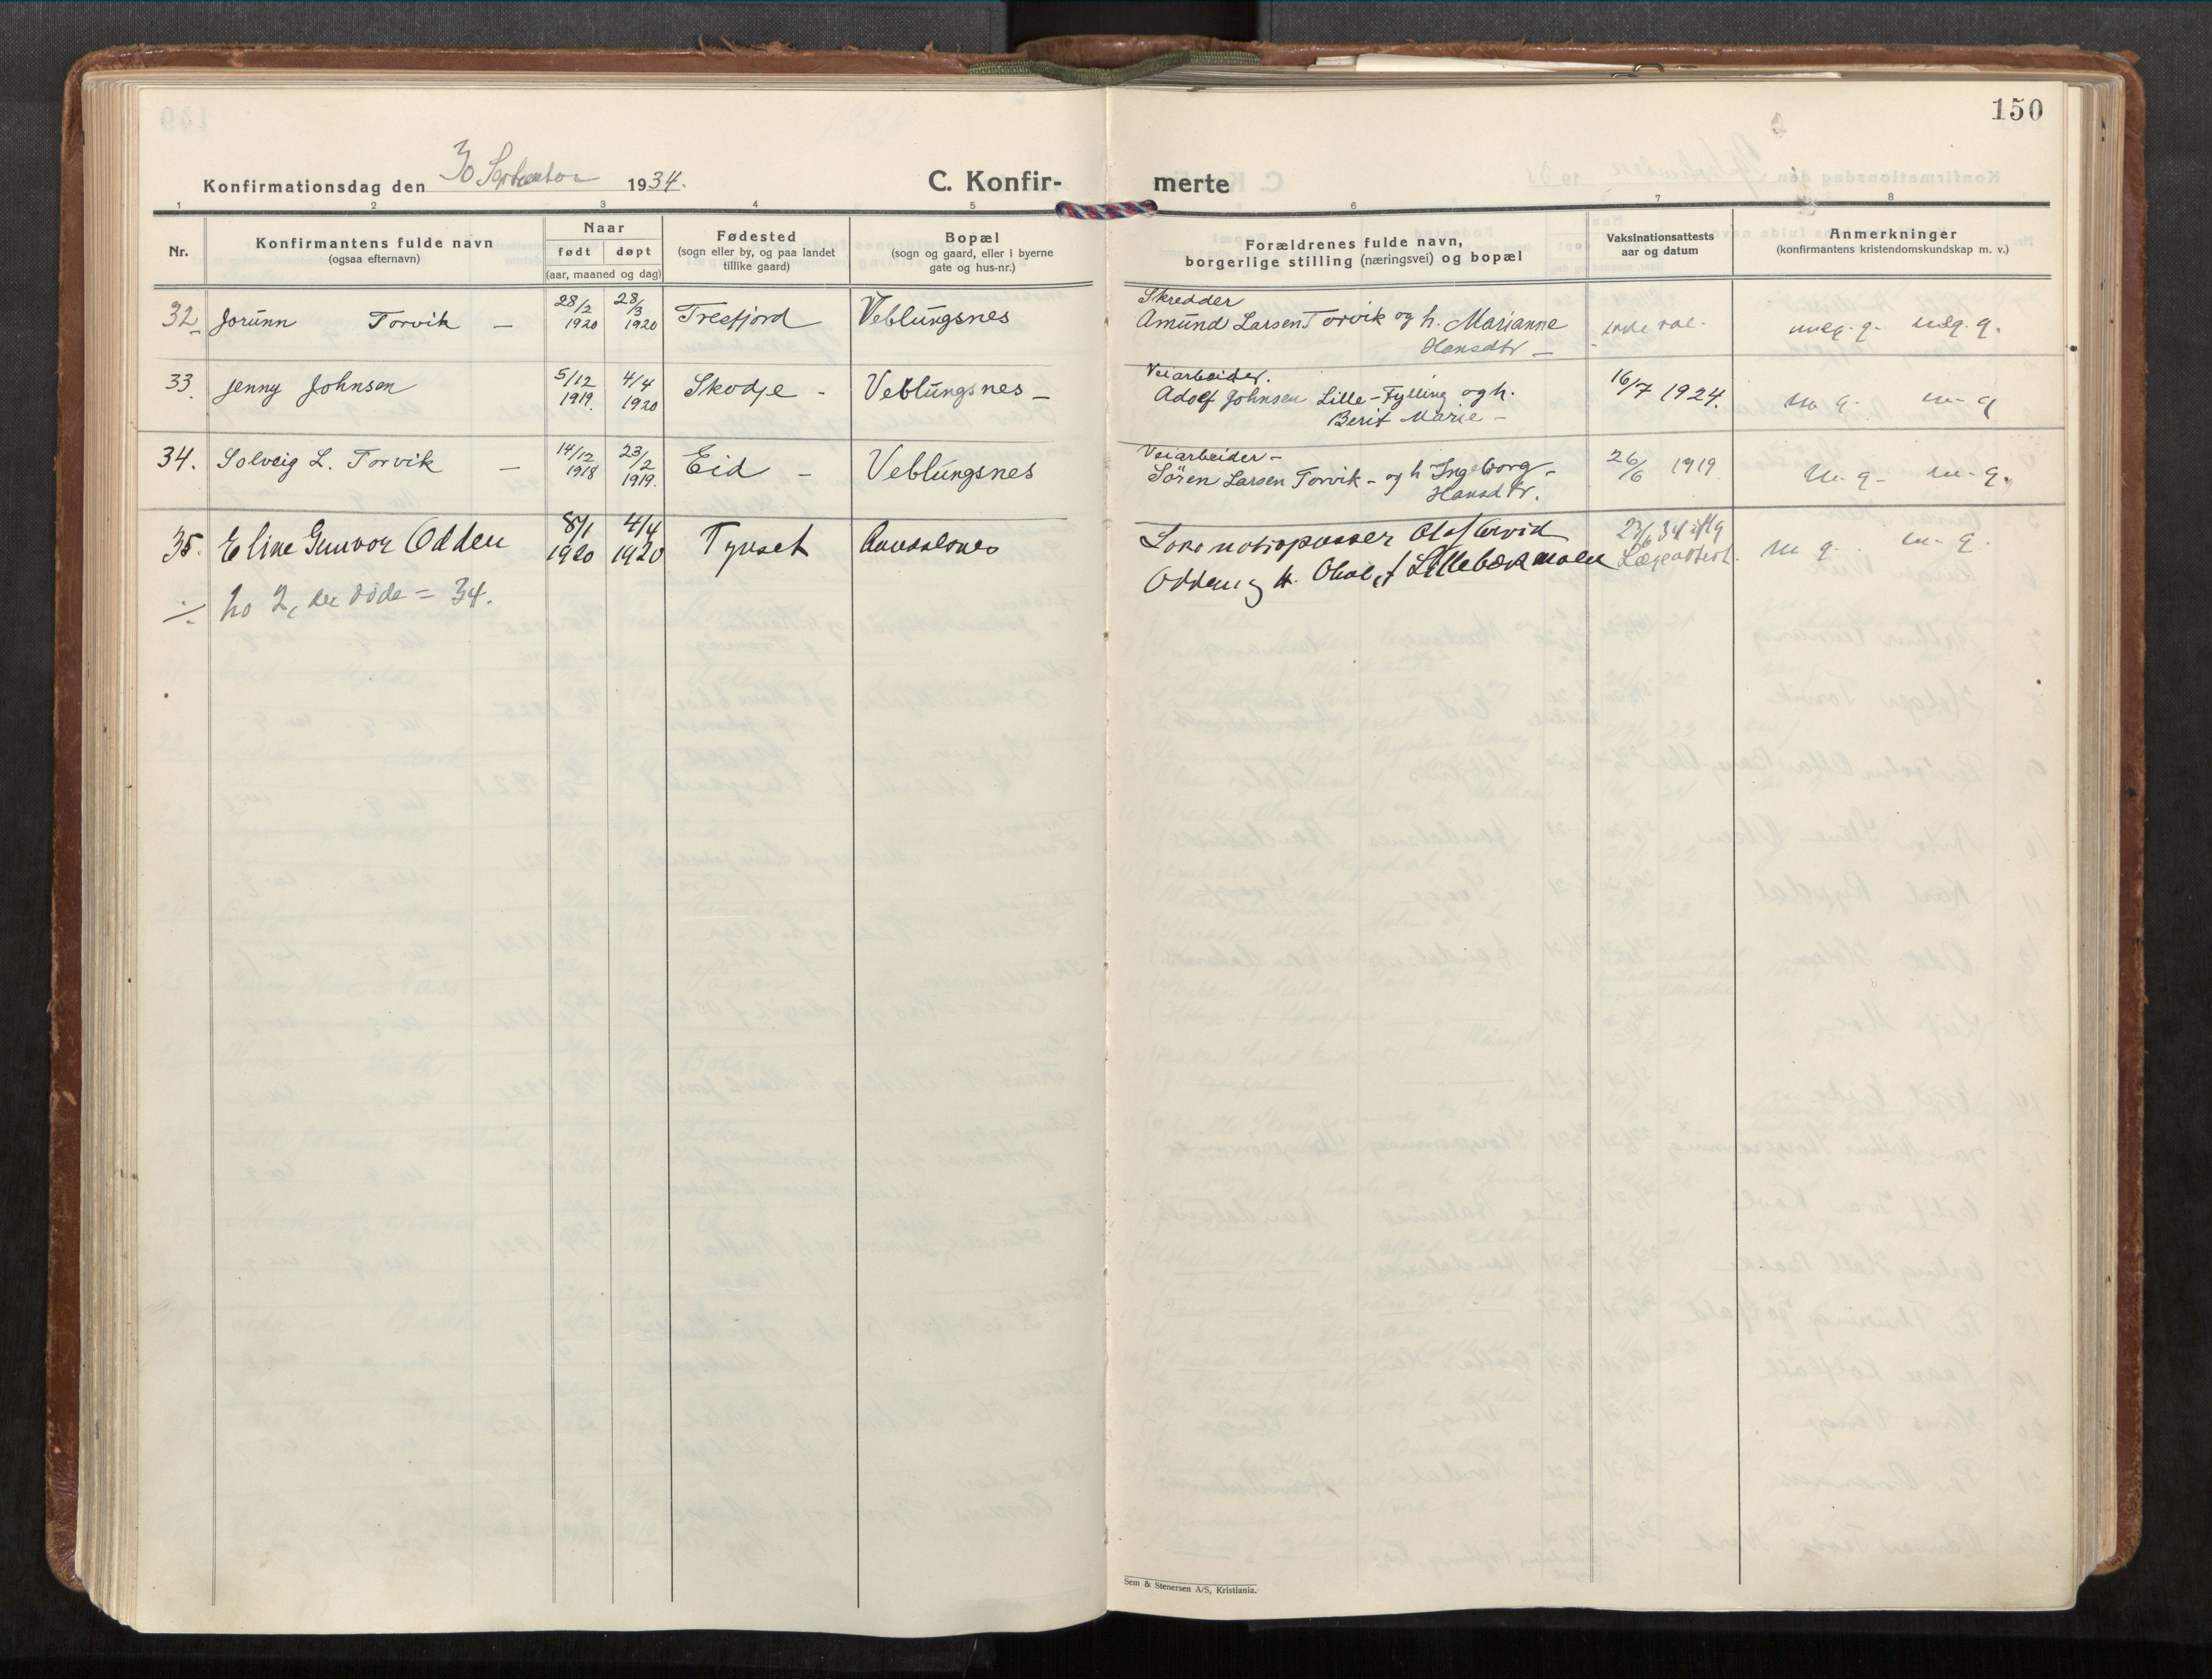 150
Konfirmationsdag den 30 September 1934.
C. Konfir-merte
1 2 3 4 5 6 7 8
Nr.
Konfirmantens fulde navn
(ogsaa efternavn)
Naar
født døpt
(aar, maaned og dag)
Fødested
(sogn eller by, og paa landet
tillike gaard)
Bopæl
(sogn og gaard, eller i byerne
gate og hus-nr.)
Forældrenes fulde navn,
borgerlige stilling (næringsvei) og bopæl
Vaksinationsattests
aar og datum
Anmerkninger
(konfirmantens kristendomskundskap m. v.)
32. Jorunn Torvik — 28/2 1920 28/3 1920 Tresfjord Veblungsnes
Skredder
Amund Larsen Torvik og h. Marianne
Hansdtr —
ikke vac. meg. g. meg. g.
33. Jenny Johnsen 5/12 1919. 4/4 1920 Skodje - Veblungsnes —
Veiarbeider.
Adolf Johnsen Lille-Fylling og h.
Berit Marie -
16/7 1924. m g. m - g
34. Solveig L. Torvik — 14/12 1918 23/2 1919. Eid - Veblungsnes
Veiarbeider -
Sören Larsen Torvik - og h Ingeborg -
Hansdtr.
26/6 1919 m. g - m - g.
35. Eline Gunvor Odden 8/1 1920 4/4 1920 Tynset Aandalsnes
Lokomotivpusser Olaf Arvid
Odden og h. f. Lillebækmoen
23/6 34 iflg
Lægeattest. m g. m - g.
÷ No 2, der døde = 34.
Sem & Stenersen A/S, Kristiania.